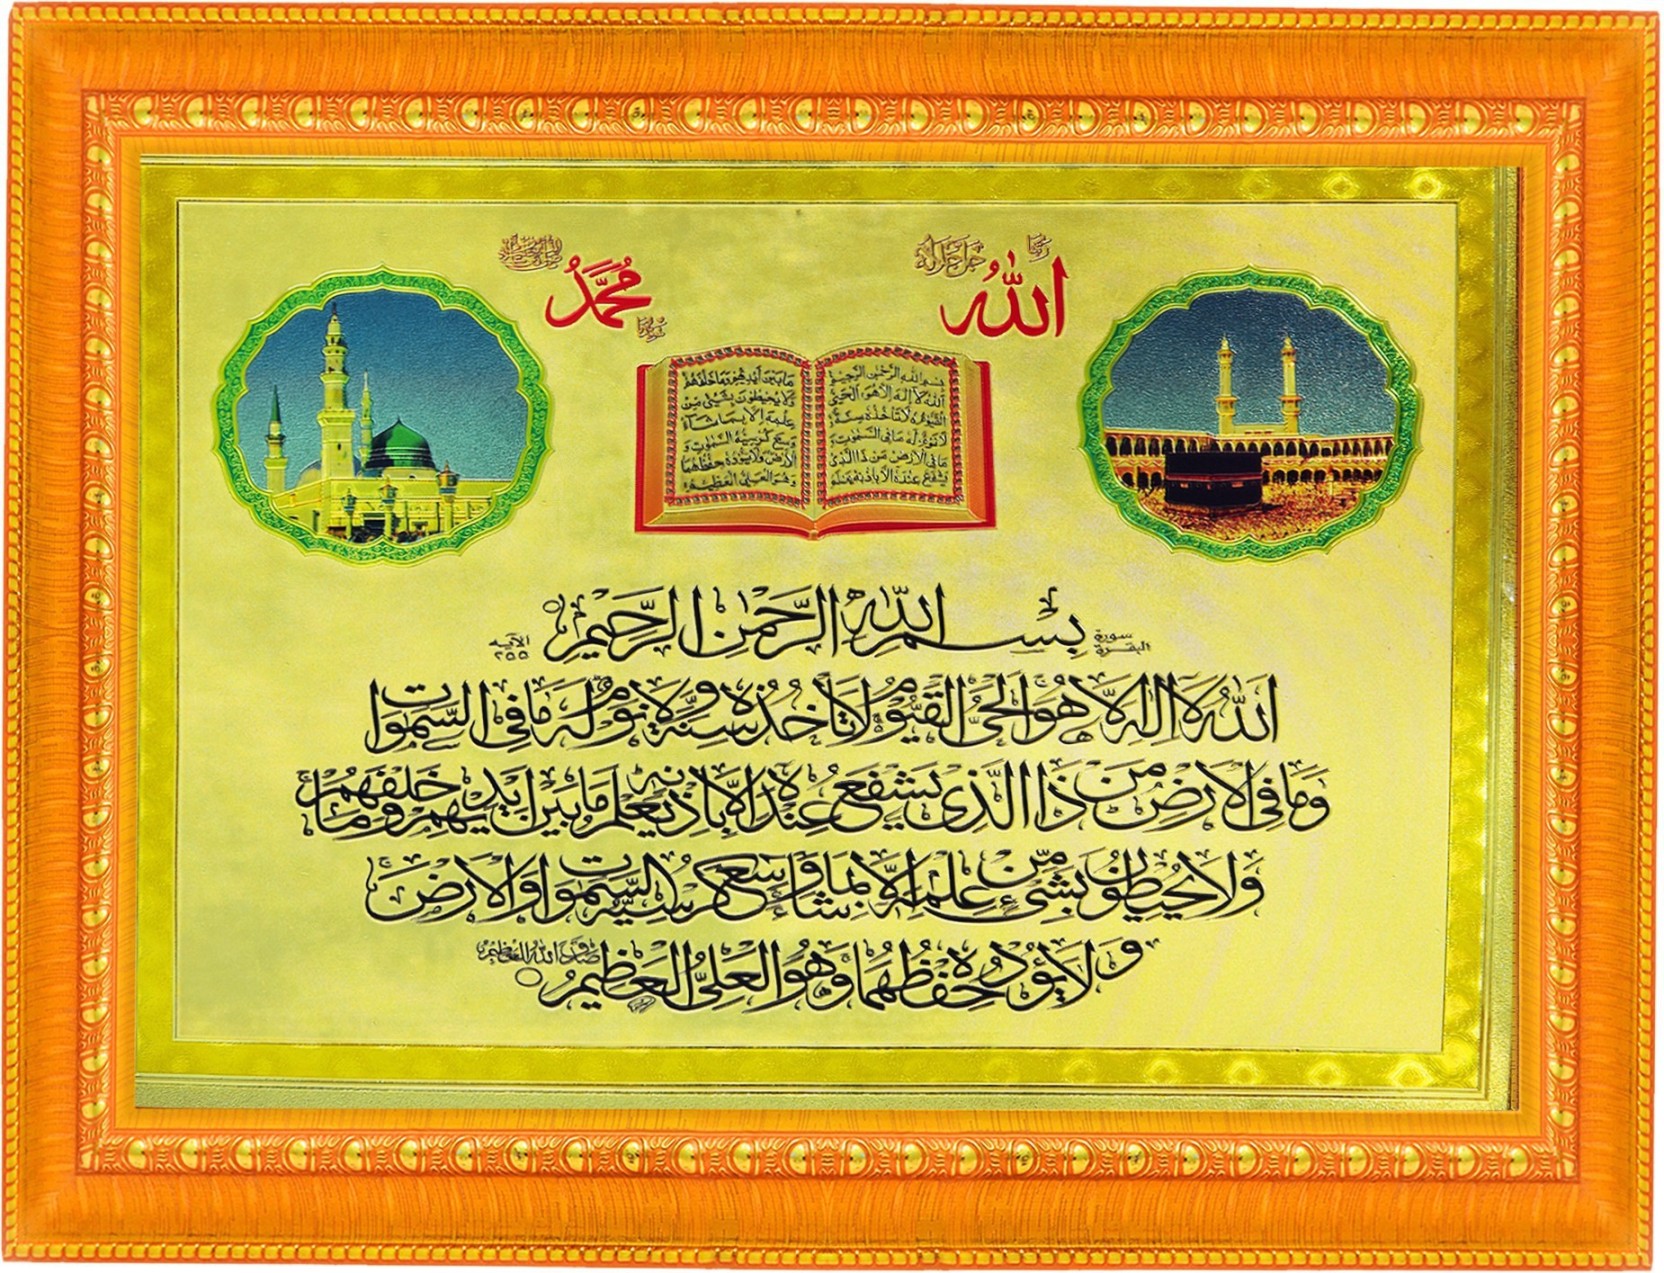 الله
ربنا
جل جلاله
محمد
بسم الله الرحمن الرحيم
الله لا اله الا هو الحي
القيوم لا تاخذه سنة
ولا نوم له ما في السموت و
ما في الارض من ذا الذي
يشفع عنده الا باذنه يعلم
ما بين ايديهم وما خلفهم
ولا يحيطون بشيء من
علمه الا بما شاء
وسع كرسيه السموت و
الارض ولا يؤده حفظهما
وهو العلي العظيم
سورة
البقرة
بسم الله الرحمن الرحيم
الآيه
٢٥٥
الله لا اله الا هو الحي القيوم لا تأخذه سنة ولا نوم له ما في السموات
وما في الارض من ذا الذي يشفع عنده الا باذنه يعلم ما بين ايديهم وما خلفهم
ولا يحيطون بشيء من علمه الا بما شاء وسع كرسيه السموات والارض
ولا يؤده حفظهما وهو العلي العظيم
صدق الله العظيم